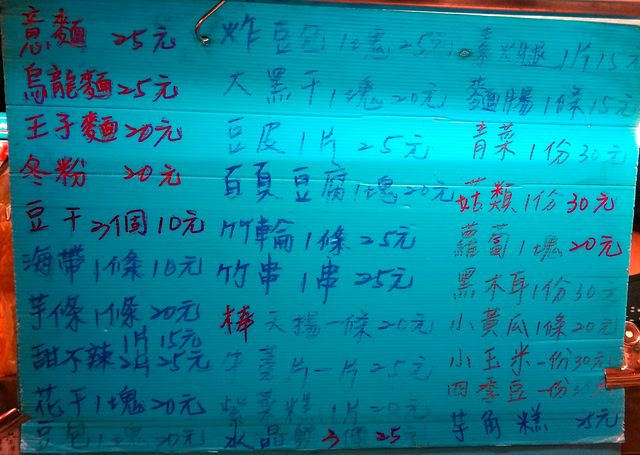 意麵 25元
烏龍麵25元
王子麵20元
冬粉 20元
豆干3個10元
海帶1條10元
芋條1條20元
1片15元
甜不辣2片25元
花干1塊20元
豆包1塊20元
炸豆包1塊25元
大黑干1塊20元
豆皮1片25元
百頁豆腐1塊20元
竹輪1條25元
竹串1串25元
棒天揚一條20元
牛蒡片一片25元
紫菜糕1片20元
水晶餃3個25
1片15元
麵腸1條15元
青菜1份30元
菇類1份30元
蘿蔔1塊20元
黑木耳1份30元
小黃瓜1條20元
小玉米一份30元
四季豆一份
芋角糕 25元